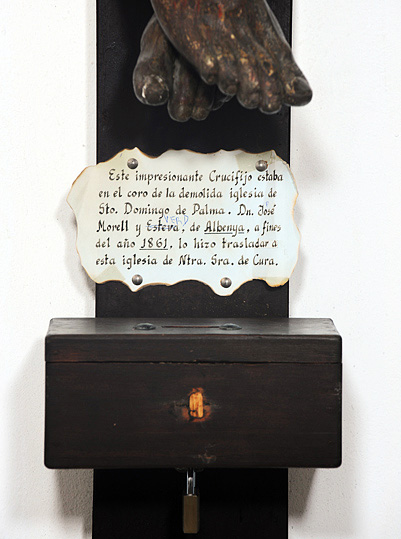 Este impresionante Crucifijo estaba
en el coro de la demolida iglesia de
Sto. Domingo de Palma. Dn. José
Morell y Esteva, de Albenya, a fines
del año 1861, lo hizo trasladar a
esta iglesia de Ntra. Sra. de Cura.